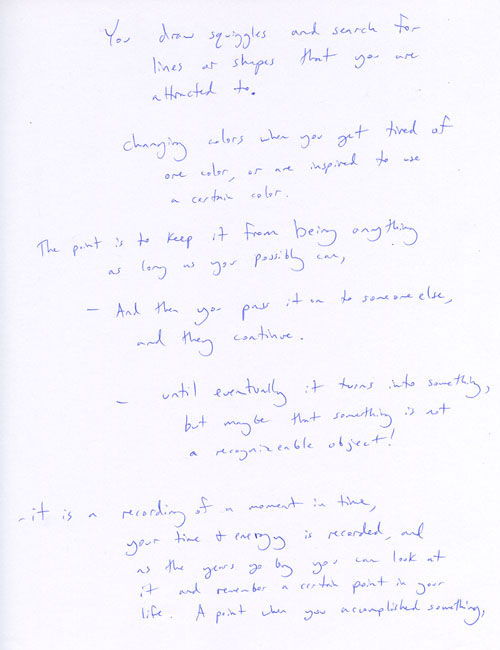 You draw squiggles and search for
lines or shapes that you are
attracted to.
changing colors when you get tired of
one color, or are inspired to use
a certain color.
The point is to keep it from being anything
as long as you possibly can,
- And then you pass it on to someone else,
and they continue.
- until eventually it turns into something,
but maybe that something is not
a recognizeable object!
-it is a recording of a moment in time,
your time + energy is recorded, and
as the years go by you can look at
it and remember a certain point in your
life. A point when you accomplished something,